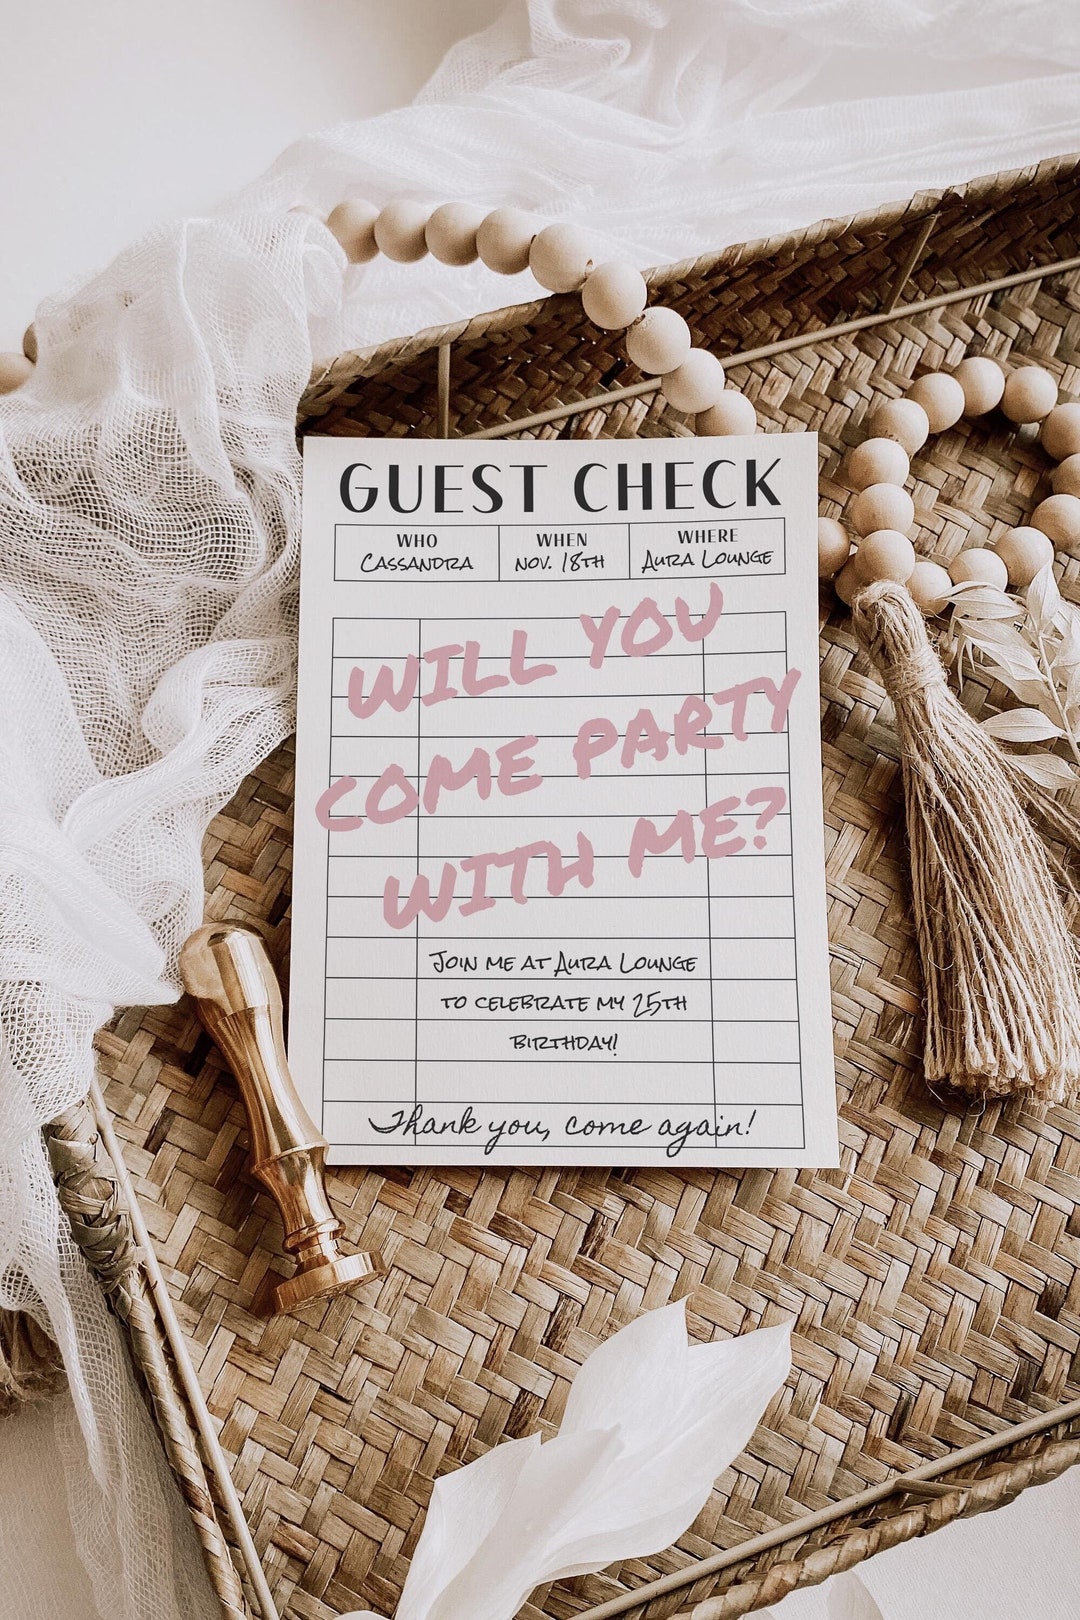 GUEST CHECK
WHO WHEN WHERE
CASSANDRA NOV. 18TH AURA LOUNGE
WILL YOU
COME PARTY
WITH ME?
JOIN ME AT AURA LOUNGE
TO CELEBRATE MY 25TH
BIRTHDAY!
Thank you, come again!